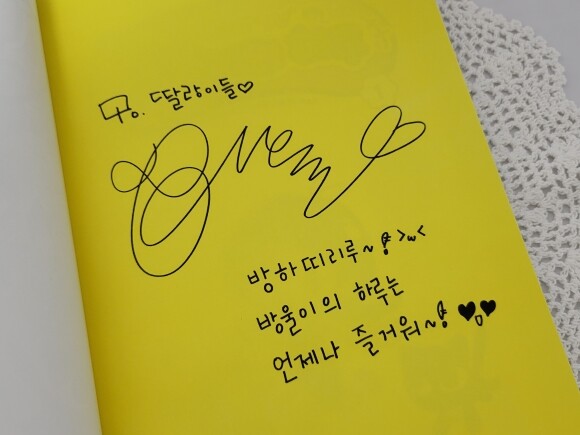 To. 딸랑이들♡
방하띠리루~! >w<
방울이의 하루는
언제나 즐거워~! ♥♥